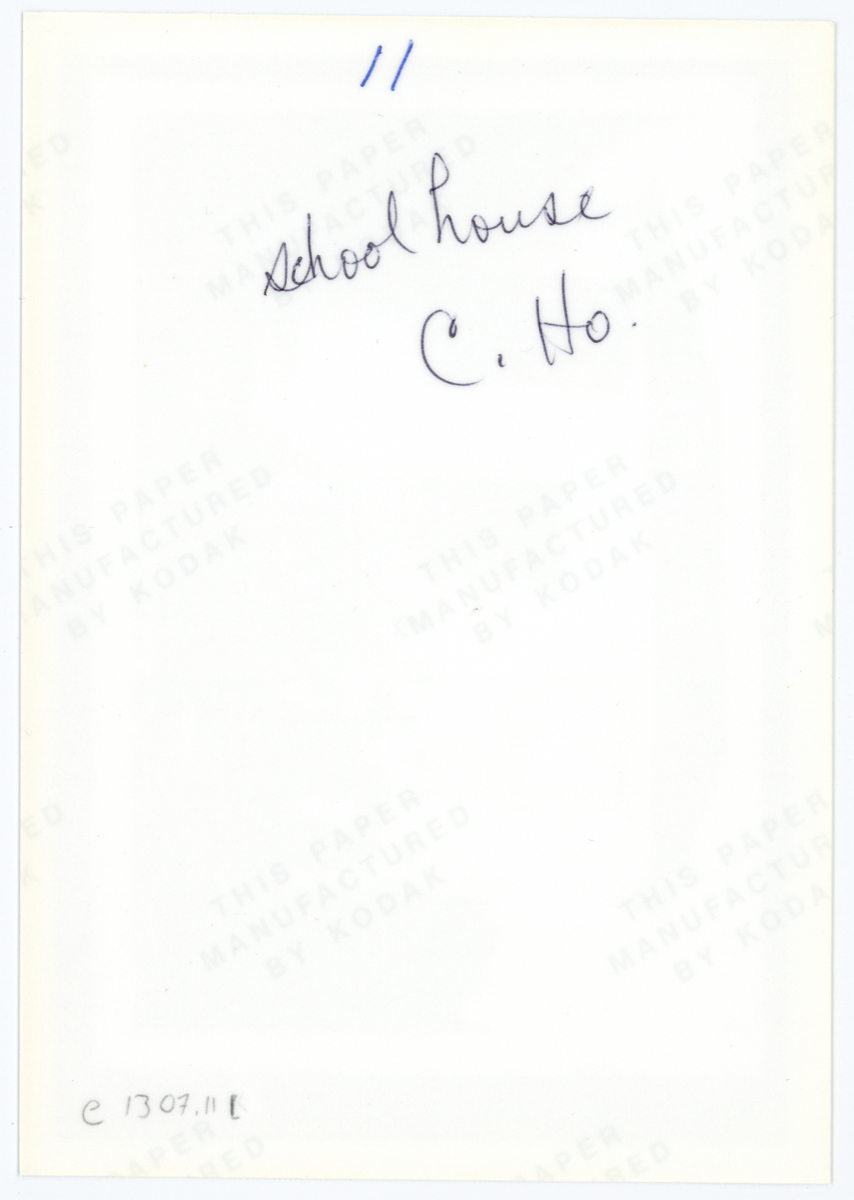 11
schoolhouse
C. Ho.
THIS PAPER
MANUFACTURED
BY KODAK
THIS PAPER
MANUFACTUR
BY KODA
THIS PAPER
MANUFACTURED
BY KODAK
THIS PAPER
MANUFACTURED
BY KODAK
THIS PAPER
MANUFACTURED
BY KODAK
THIS PAPER
MANUFACTUR
BY KODA
C 1307.11